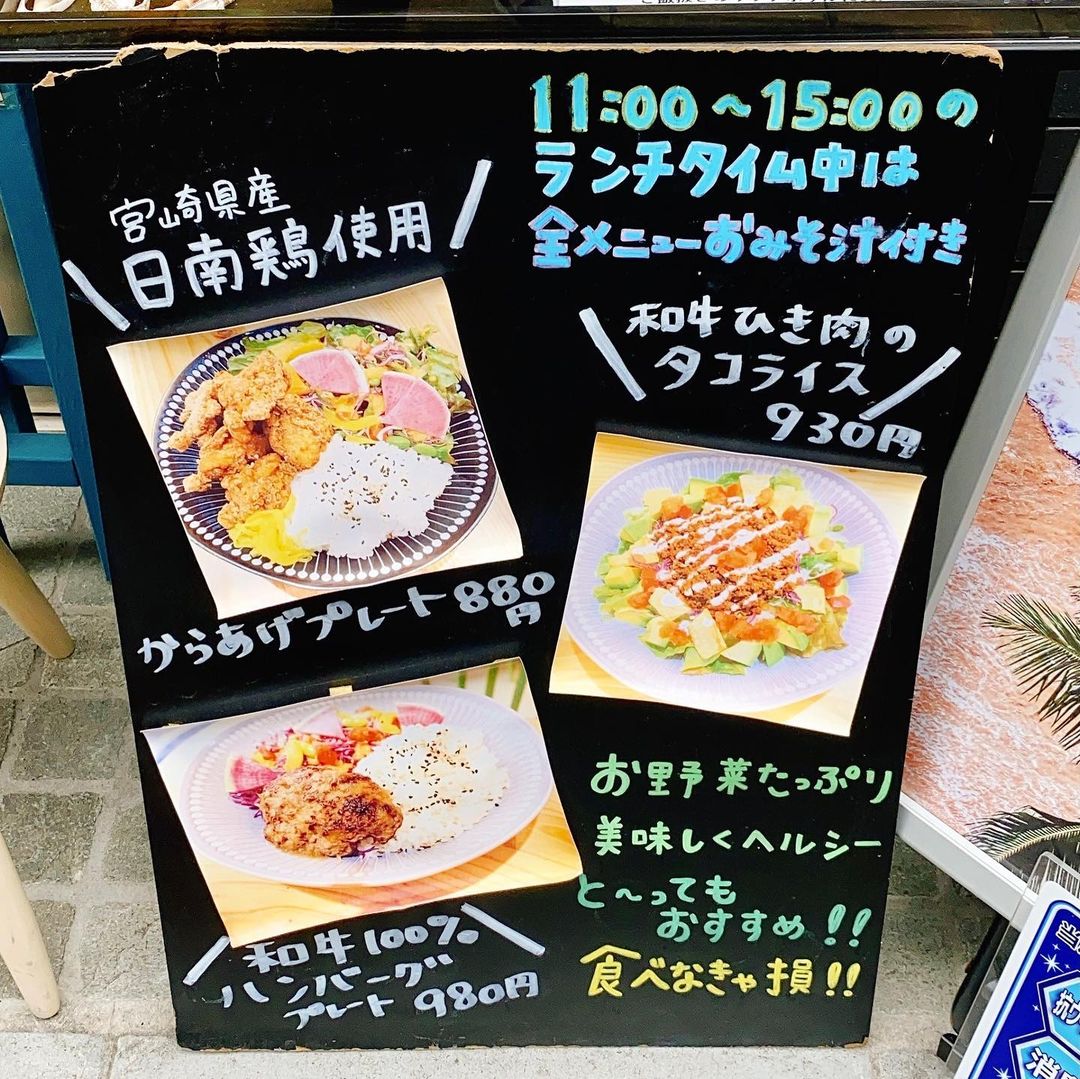 11:00〜15:00の
ランチタイム中は
全メニューおみそ汁付き
宮崎県産
日南鶏使用
からあげプレート880
円
和牛ひき肉の
タコライス
930円
和牛100%
ハンバーグ
プレート 980円
お野菜たっぷり
美味しくヘルシー
と〜っても
おすすめ!!
食べなきゃ損!!